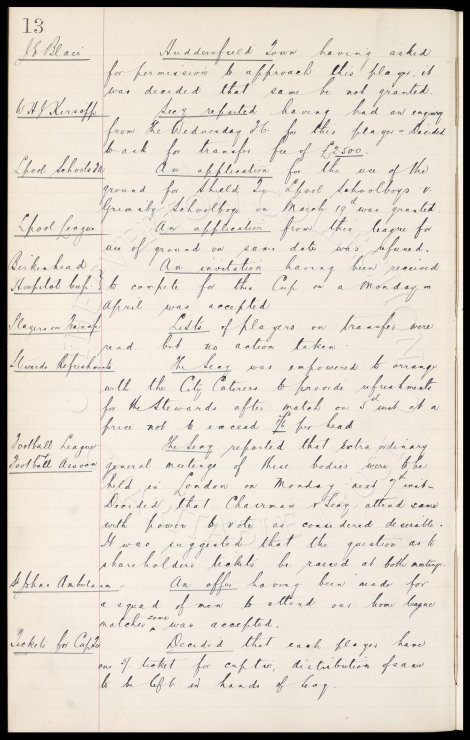 13
J E Blair Huddersfield Town having asked
for permission to approach this player it
was decided that same be not granted.
W H J Secy reported having had an enquiry
from the Wednesday F.C. for this player - Decided
to ask for transfer fee of £2500.
Lpool Schools FA An application for the use of the
ground for Shield Tie Lpool Schoolboys v.
Grimsby Schoolboys on March 19th was granted.
Lpool League An application from this league for
use of ground on same date was refused.
Birkenhead An invitation having been received
Hospital Cup } to compete for this Cup on a Monday in
April was accepted
Players on Transf Lists of players on transfer were
read but no action taken.
Stewards Refreshments The Secy was empowered to arrange
with the City Caterers to provide refreshments
for the Stewards after match on 5th inst at a
price not to exceed per head
Football League The Secy reported that extra ordinary
Football Assocn general meetings of these bodies were to be
held in London on Monday next 7th inst
Decided that Chairman & Secy attend same
with power to vote as considered desirable.
It was suggested that the question as to
shareholders tickets be raised at both meetings.
St Johns Ambulance - An offer having been made for
a squad of men to attend our home league
matches same was accepted.
Tickets for Cup Tie Decided that each player have
one 5/- ticket for cup tie, distribution of same
to be left in hands of Secy.